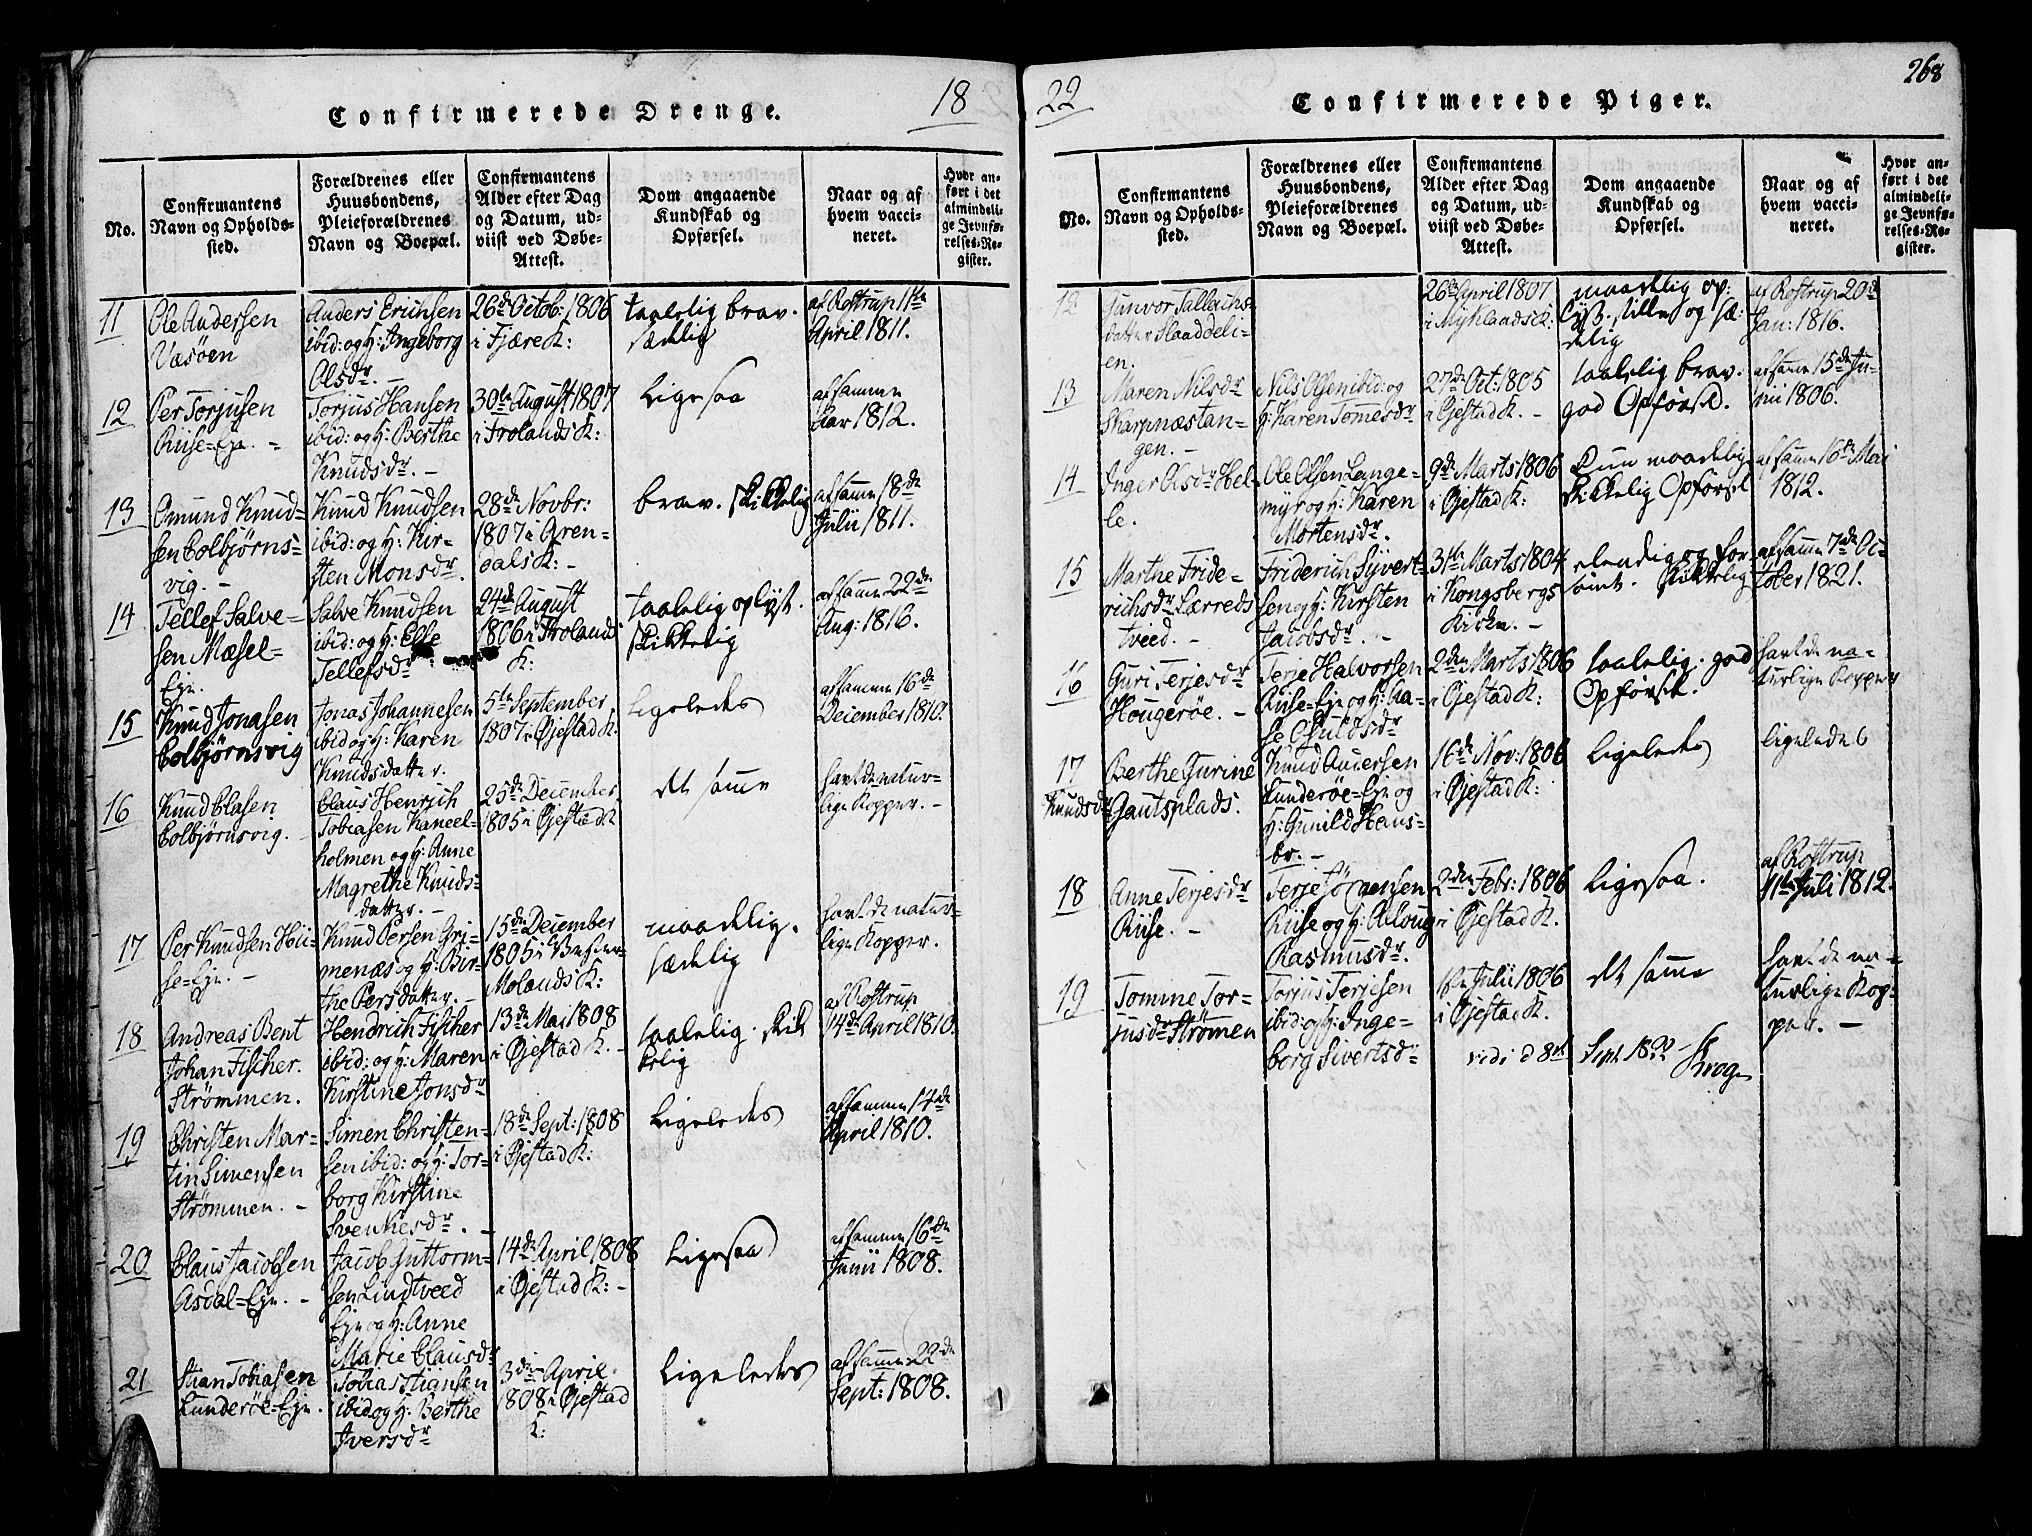 Confirmerede Drenge.
18
No.
Confirmantens
Navn og Opholds-
sted.
Forældrenes eller
Huusbondens,
Pleieforældrenes
Navn og Boepæl.
Confirmantens
Alder efter Dag
og Datum, ud-
viist ved Døbe-
Attest.
Dom angaaende
Kundskab og
Opførsel.
Naar og af
hvem vacci-
neret.
Hvor an-
ført i det
almindeli-
ge Jevnfø-
relses-Re-
gister.
11
Ole Andersen
Vasøen
Anders Erichsen
ibid: og H: Ingeborg
Olsdr. -
26de Octob: 1806
i Fjære K:
taalelig brav.
sædelig
af Rostrup 11te
April 1811.
12
Per Torjusen
Riise=Eje. -
Torjus Hansen
ibid: og H: Berthe
Knudsdr. -
30te August 1807
i Frolands K:
Ligesaa
af samme
Aar 1812.
13
Omund Knud-
sen Colbjørns=
vig. -
Knud Knudsen
ibid: og H: Kir-
sten Monsdr.
28de Novbr:
1807 i Aren-
dals K: -
brav. skikkelig
af samme 18de
Julii 1811.
14
Tellef Salve-
sen Mæsel=
Eje.
Salve Knudsen
ibid: og H: Elle
Tellefsdr
24de August
1806 i Frolands
K:
taalelig oplyst.
skikkelig
af samme 22de
Aug: 1816.
15
Knud Jonasen
Colbjørnsvig
Jonas Johannesen
ibid og H: Karen
Knudsdatter.
5te September
1807 i Øjestad K.
Ligeledes
af samme 16de
December 1810.
16
Knud Clasen
Colbjørnsvig.
Claus Henrich
Tobiasen Kaneel-
holmen og H: Anne
Magrethe Knuds=
datter. -
25de December
1805 i Øjestad K
det samme
havt de natur-
lige Kopper. -
17
Per Knudsen Hii-
se=Eje. -
Knud Persen Gri-
menæs og H: Bir-
the Persdatter. -
15de December
1805 i Vester-
Molands K:
maadelig.
sædelig
havt de natur-
lige Kopper.
18
Andreas Bent
Johan Fischer.
Strømmen.
Hendrich Fischer
ibid: og H: Maren
Kirstine Jonsdr
13de Mai 1808
i Øjestad K. -
taalelig. skik
kelig
af Rostrup
14de April 1810.
19
Christen Mar-
tin Simensen
Strømmen. -
Simen Christen-
sen ibid: og H: Tor-
borg Kirstine
Svenkesdr. -
18de Sept: 1808
i Øjestad K:
Ligeledes
af samme 14de
April 1810.
20
Claus Jacobsen
Asdal=Eje. -
Jacob Guttorm-
sen Lindtveed
Eje og H: Anne
Marie Clausdr
14de April 1808
i Øjestad K: -
Ligesaa
af samme 16de
Junii 1808.
21
Stian Tobiasen
Lunderöe=Eje.
Tobias Stiansen
ibid og H: Berthe
Iversdr
3die April
1808 i Øjestad
K:
Ligeledes
af samme 22de
Sept: 1808.
22
Confirmerede Piger.
268
No.
Confirmantens
Navn og Opholds-
sted.
Forældrenes eller
Huusbondens,
Pleieforældrenes
Navn og Boepæl.
Confirmantens
Alder efter Dag
og Datum, ud-
viist ved Døbe-
Attest.
Dom angaaende
Kundskab og
Opførsel.
Naar og af
hvem vacci-
neret.
Hvor an-
ført i det
almindeli-
ge Jevnfø-
relses-Re-
gister.
12
Gunvor Tallachs-
datter
en.
26de April 1807
i Myklands K:
maadelig op:
lyst. stille og sæ:
delig
af Rostrup 20de
Jan: 1816.
13
Maren Nilsdr
Skarpnæstan-
gen. -
Nils Olsen ibid: og
H: Karen Tomesdr
27de Oct: 1805
i Øjestad K. -
taalelig brav.
god Opførsel.
af samme 15de Ju-
nii 1806.
14
Inger Olsdr Hel-
le.
Ole Olsen Lange-
myr og H: Karen
Mortensdr.
9de Marts 1806
i Øjestad K:
kun maadelig
skikkelig Opførsel
af samme 16de Mai
1812.
15
Marthe Fride-
richsdr Lærreds
tveed. -
Friderich Syvert-
sen og H: Kirsten
Jacobsdr. -
31te Marts 1804
i Kongsbergs
Kirke. -
elendig og for
sømt. skikkelig
af samme 7de Oc-
tober 1821.
16
Guri Terjesdr
Hougeröe. -
Terje Halvorsen
Riise=Eje og H: Aa-
se Osuldsdr
2den Marts 1806
i Øjestad K:
taalelig. god
Opførsel.
havt de na-
turlige Kopper
17
Knudsdr
Berthe Gurine
Gautsplads.
Knud Andersen
Lunderöe=Eje og
H: Gunild Hans-
dr. -
16de Nov: 1806
i Øjestad K:
ligeledes
ligeledes
18
Anne Terjesdr
Riise. -
Terje Sörensen
Riise og H: Aaloug
Rasmusdr.
2den Febr: 1806
i Øjestad K.
ligesaa.
af Rostrup
11te Juli 1812.
19
Tomine Tor-
jusdr Strömmen
Torjus Terjesen
ibid: og H: Inge-
borg Sivertsdr
18de Julii 1806
i Øjestad K.
det samme
havt de na-
turlige Kop-
per. -
vidi d 8de Sept. 1822
Krog